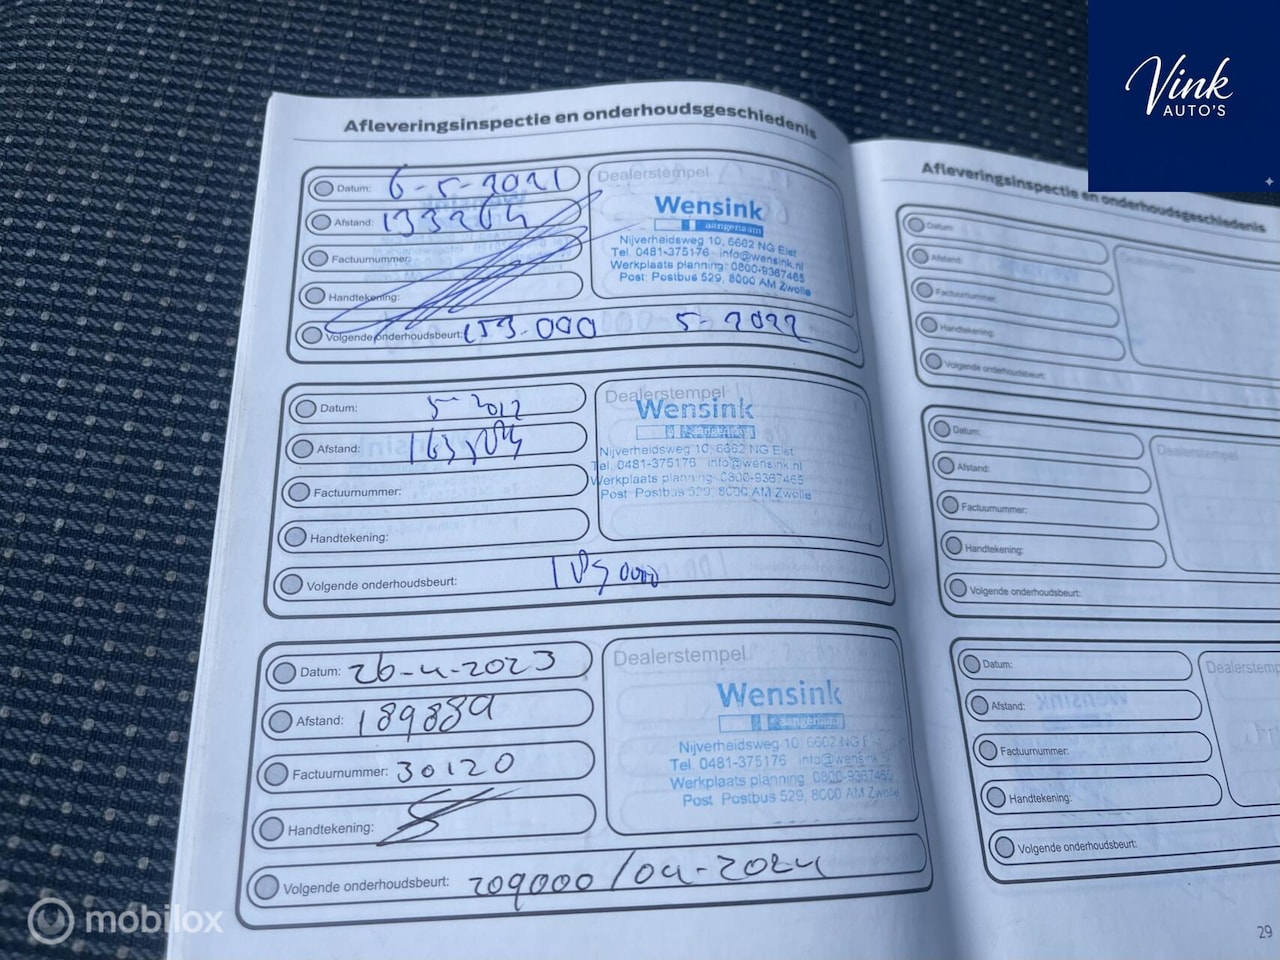 Vink
AUTO'S
Afleveringsinspectie en onderhoudsgeschiedenis
Datum: 6-5-2021
Afstand: 133264
Factuurnummer:
Handtekening:
Volgende onderhoudsbeurt: 153.000 5-2022
Dealerstempel
Wensink
aangenaam
Nijverheidsweg 10, 6662 NG Elst
Tel. 0481-375176 info@wensink.nl
Werkplaats planning: 0800-9367465
Post: Postbus 529, 8000 AM Zwolle
Datum:
Afstand:
Factuurnummer:
Handtekening:
Volgende onderhoudsbeurt:
Dealerstempel
Wensink
aangenaam
Nijverheidsweg 10, 6662 NG Elst
Tel. 0481-375176 info@wensink.nl
Werkplaats planning: 0800-9367465
Post: Postbus 529, 8000 AM Zwolle
Datum: 26-4-2023
Afstand: 189889
Factuurnummer: 30120
Handtekening:
Volgende onderhoudsbeurt: 209000 / 04-2024
Dealerstempel
Wensink
aangenaam
Nijverheidsweg 10, 6662 NG
Tel. 0481-375176 info@wensink
Werkplaats planning 0800-9367465
Post Postbus 529, 8000 AM Zwolle
Afleveringsinspectie en onderhoudsgeschiedenis
Datum:
Afstand:
Factuurnummer:
Handtekening:
Volgende onderhoudsbeurt:
Datum:
Afstand:
Factuurnummer:
Handtekening:
Volgende onderhoudsbeurt:
Dealerstempel
Datum:
Afstand:
Factuurnummer:
Handtekening:
Volgende onderhoudsbeurt:
Dealerstemp
29
mobilox